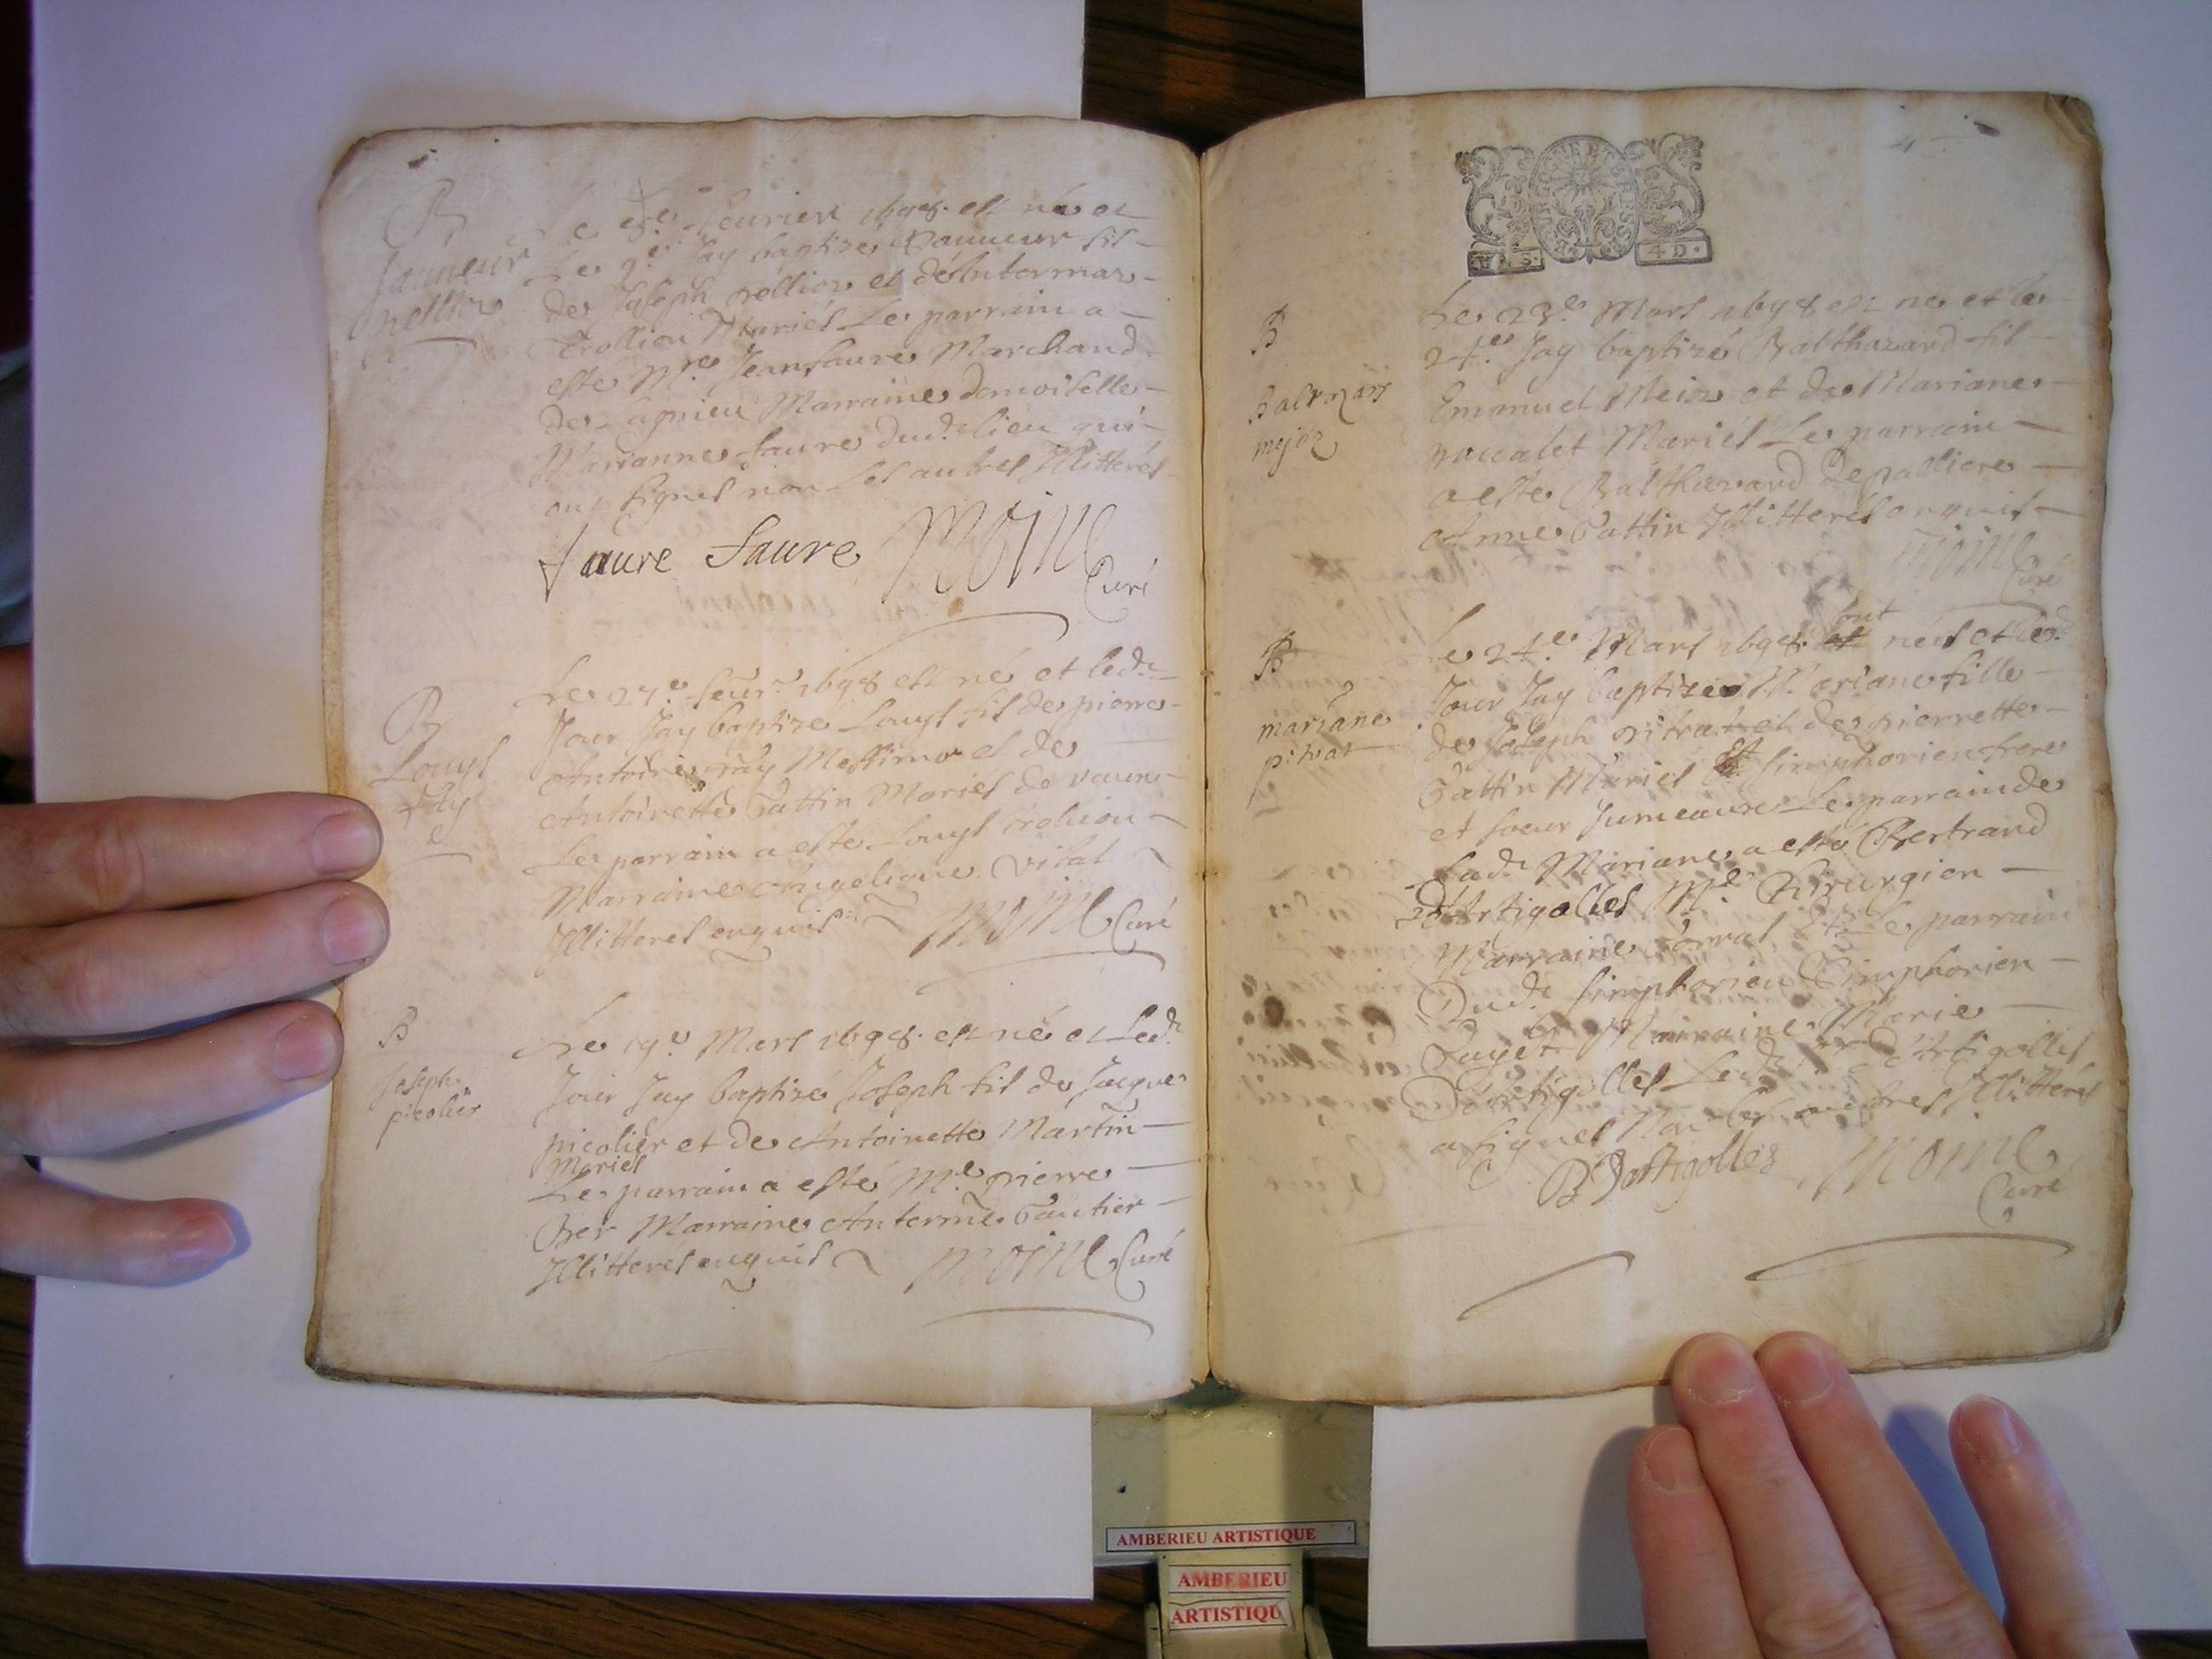 B
Le 8e feurier 1698. est né et
Le 9e Jay baptizé fil
de Joseph et
Mariés Le parrain a
este Mre Jean faure Marchand
de Lagnieu Marraine demoiselle
Marianne faure dud. lieu qui
ont signes non Les autres Illitterés
faure faure Moine
Curé
B
Louys
Ray
Le 27e feur. 1698 est né et led.
Jour Jay baptize Louys fil de pierre
Antoine ray et de
Antoinette Gattin Mariés de
Le parrain a este Louys trollion
Marraine Angelique Vital
Illitteres enquis Moine Curé
B
Joseph
picolier
Le 19e Mars 1698. est né et Led.
Jour Jay baptizé Joseph fil de Jacque
picolier et de Antoinette Martin
Mariés
Le parrain a esté Me pierre
Marraine Anterme Gautier
Illitterés enquis Moine Curé
4
BOURGOGNE ET BRESSE
4 D.
B
Baltazar
mejoz
Le 23e Mars 1698 est né et le
24e Jay baptizé Balthazard fil
Emanuel et de Mariane
Mariés Le parrain
a esté Balthazard depalliere
Anne Gattin Illitterés enquis
Moine
Curé
B
mariane
pitrat
Le 24e Mars 1698. sont nés et led.
Jour Jay baptizes Mariane fille
de Joseph pitrat et de pierrette
Gattin Mariés Et simphorien frere
et soeur Jumeaux Le parrain de
Lad. Mariane a esté Bertrand
D'Artigolles Me Chirurgien
Marraine Et Le parrain
Dud. simphorien Simphorien
Marraine Marie
D'Artigolles Led. Sr D'Artigolles
a signes Non Les autres Illitterés
B Dartigolles Moine
Curé
AMBERIEU ARTISTIQUE
AMBERIEU
ARTISTIQU